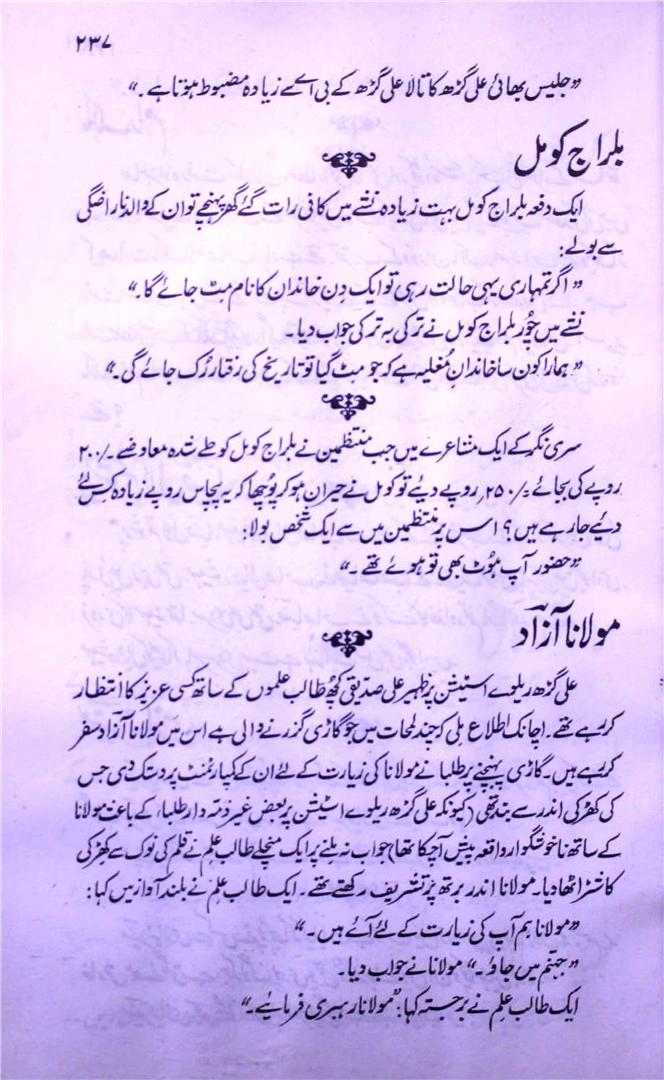 ۲۳۷
”جلیس بھائی علی گڑھ کا تالا علی گڑھ کے بی اے سے زیادہ مضبوط ہوتا ہے۔“
بلراج کومل
ایک دفعہ بلراج کومل بہت زیادہ نشے میں کافی رات گئے گھر پہنچے تو ان کے والد ناراضگی
سے بولے:
”اگر تمہاری یہی حالت رہی تو ایک دن خاندان کا نام مٹ جائے گا۔“
نشے میں چُور بلراج کومل نے ترکی بہ ترکی جواب دیا۔
”ہمارا کون سا خاندانِ مُغلیہ ہے کہ جو مٹ گیا تو تاریخ کی رفتار رُک جائے گی۔“
سری نگر کے ایک مشاعرے میں جب منتظمین نے بلراج کومل کو طے شدہ معاوضے ۔/۲۰۰
روپے کی بجائے ۔/۲۵۰ روپے دیئے تو کومل نے حیران ہو کر پوچھا کہ یہ پچاس روپے زیادہ کس لئے
دیئے جا رہے ہیں؟ اس پر منتظمین میں سے ایک شخص بولا:
”حضور آپ ہُوٹ بھی تو ہوئے تھے۔“
مولانا آزاد
علی گڑھ ریلوے اسٹیشن پر ظہیر علی صدیقی کچھ طالب علموں کے ساتھ کسی عزیز کا انتظار
کر رہے تھے۔ اچانک اطلاع ملی کہ چند لمحات میں جو گاڑی گزرنے والی ہے اس میں مولانا آزاد سفر
کر رہے ہیں۔ گاڑی پہنچنے پر طلبا نے مولانا کی زیارت کے لئے ان کے کمپارٹمنٹ پر دستک دی جس
کی کھڑکی اندر سے بند تھی (کیونکہ علی گڑھ ریلوے اسٹیشن پر بعض غیر ذمّہ دار طلباء کے باعث مولانا
کے ساتھ ناخوشگوار واقعہ پیش آچکا تھا) جواب نہ ملنے پر ایک منچلے طالب علم نے قلم کی نوک سے کھڑکی
کا شٹر اٹھا دیا۔ مولانا اندر برتھ پر تشریف رکھتے تھے۔ ایک طالب علم نے بلند آواز میں کہا:
”مولانا ہم آپ کی زیارت کے لئے آئے ہیں۔“
”جہنّم میں جاؤ۔“ مولانا نے جواب دیا۔
ایک طالب علم نے برجستہ کہا: ”مولانا رہبری فرمایئے۔“